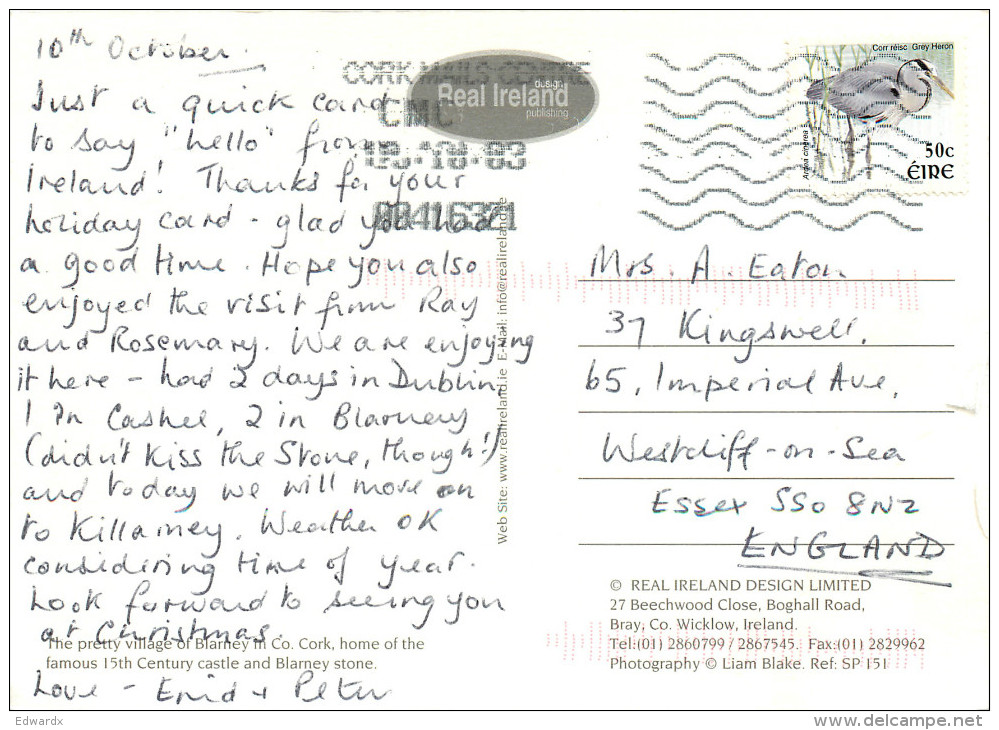 10th October.
Just a quick card
to say "hello" from
Ireland! Thanks for your
holiday card - glad you had
a good time. Hope you also
enjoyed the visit from Ray
and Rosemary. We are enjoying
it here - had 2 days in Dublin,
1 in Cashel, 2 in Blarney
(didn't kiss the Stone, though!)
and today we will move on
to Killarney. Weather OK
considering time of year.
Look forward to seeing you
at Christmas.
Love - Enid + Peter
The pretty village of Blarney in Co. Cork, home of the
famous 15th Century castle and Blarney stone.
design
Real Ireland
publishing
CORK MAILS CENTRE
CMC
Web Site: www.realireland.ie E-Mail: info@realireland.ie
Corr réisc Grey Heron
Ardea cinerea
50c
ÉIRE
Mrs. A. Eaton
37 Kingswell,
65, Imperial Ave,
Westcliff-on-Sea
Essex SS0 8NZ
ENGLAND
© REAL IRELAND DESIGN LIMITED
27 Beechwood Close, Boghall Road,
Bray, Co. Wicklow, Ireland.
Tel:(01) 2860799 / 2867545. Fax:(01) 2829962
Photography © Liam Blake. Ref: SP 151
Edwardx
delcampe.net